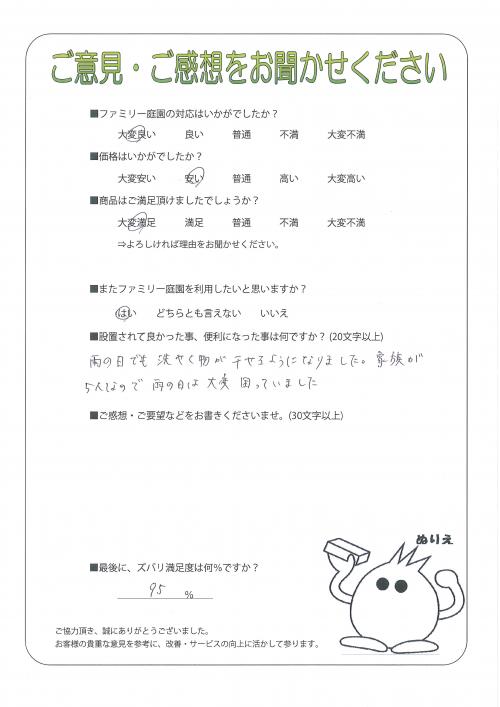 ご意見・ご感想をお聞かせください
■ファミリー庭園の対応はいかがでしたか？
大変良い 良い 普通 不満 大変不満
■価格はいかがでしたか？
大変安い 安い 普通 高い 大変高い
■商品はご満足頂けましたでしょうか？
大変満足 満足 普通 不満 大変不満
⇒よろしければ理由をお聞かせください。
■またファミリー庭園を利用したいと思いますか？
はい どちらとも言えない いいえ
■設置されて良かった事、便利になった事は何ですか？(20文字以上)
雨の日でも 洗たく物が干せるようになりました。家族が
5人なので 雨の日は 大変 困っていました
■ご感想・ご要望などをお書きくださいませ。(30文字以上)
ぬりえ
■最後に、ズバリ満足度は何％ですか？
95 ％
ご協力頂き、誠にありがとうございました。
お客様の貴重な意見を参考に、改善・サービスの向上に活かして参ります。